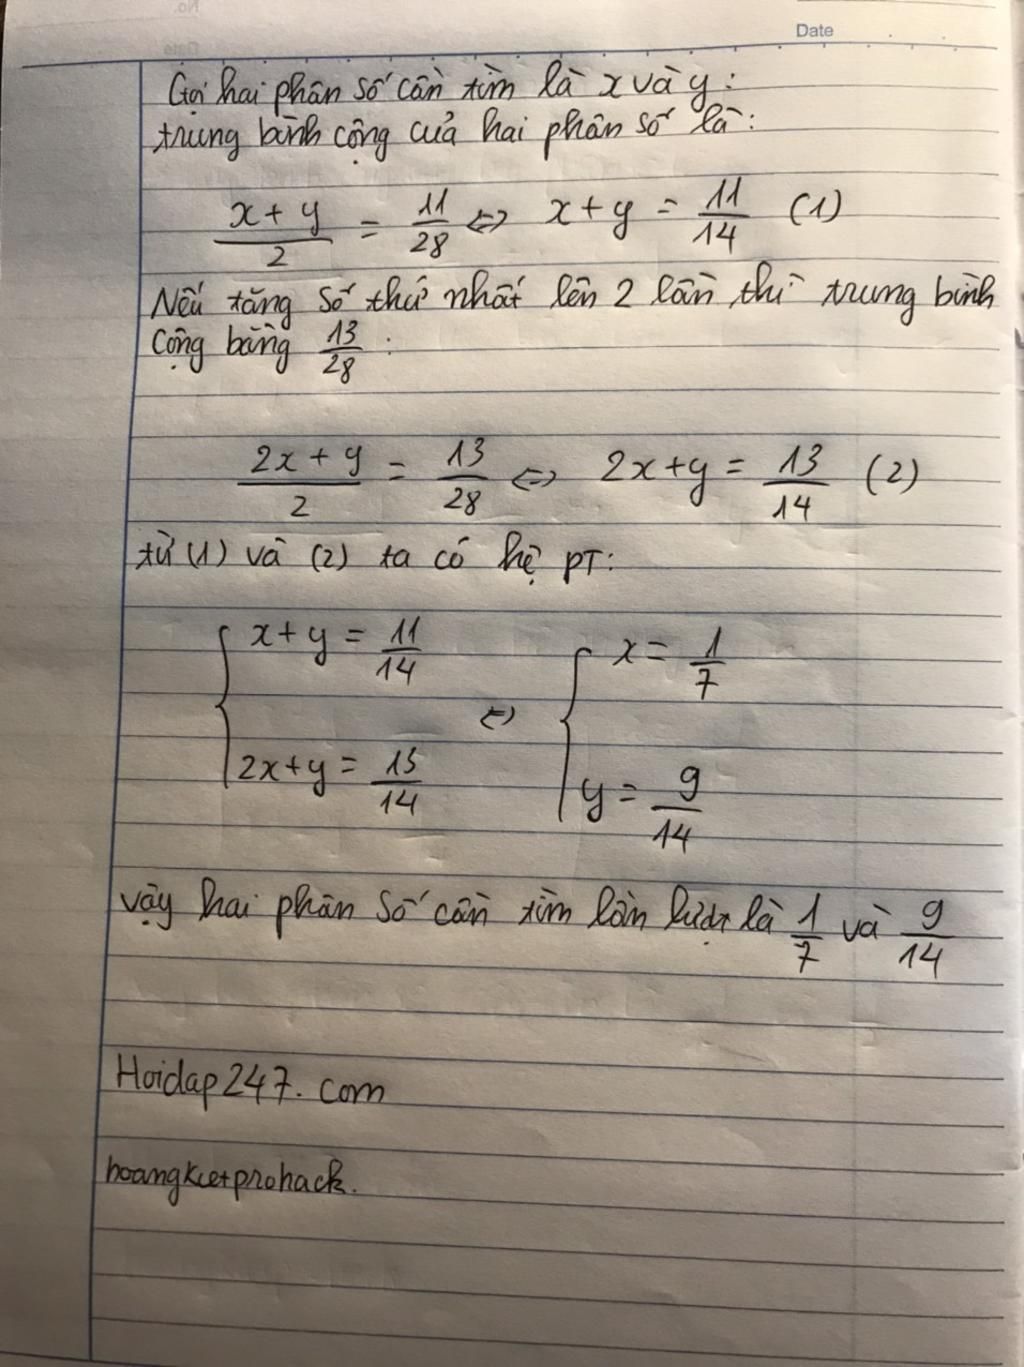 Date
Gọi hai phân số cần tìm là x và y:
trung bình cộng của hai phân số là:
x + y / 2 = 11/28 ⇔ x + y = 11/14 (1)
Nếu tăng số thứ nhất lên 2 lần thì trung bình
cộng bằng 13/28 :
2x + y / 2 = 13/28 ⇔ 2x + y = 13/14 (2)
từ (1) và (2) ta có hệ PT:
{ x + y = 11/14 ⇔ { x = 1/7
2x + y = 13/14 y = 9/14
vậy hai phân số cần tìm lần lượt là 1/7 và 9/14
Hoidap247.com
hoangkietprohack.